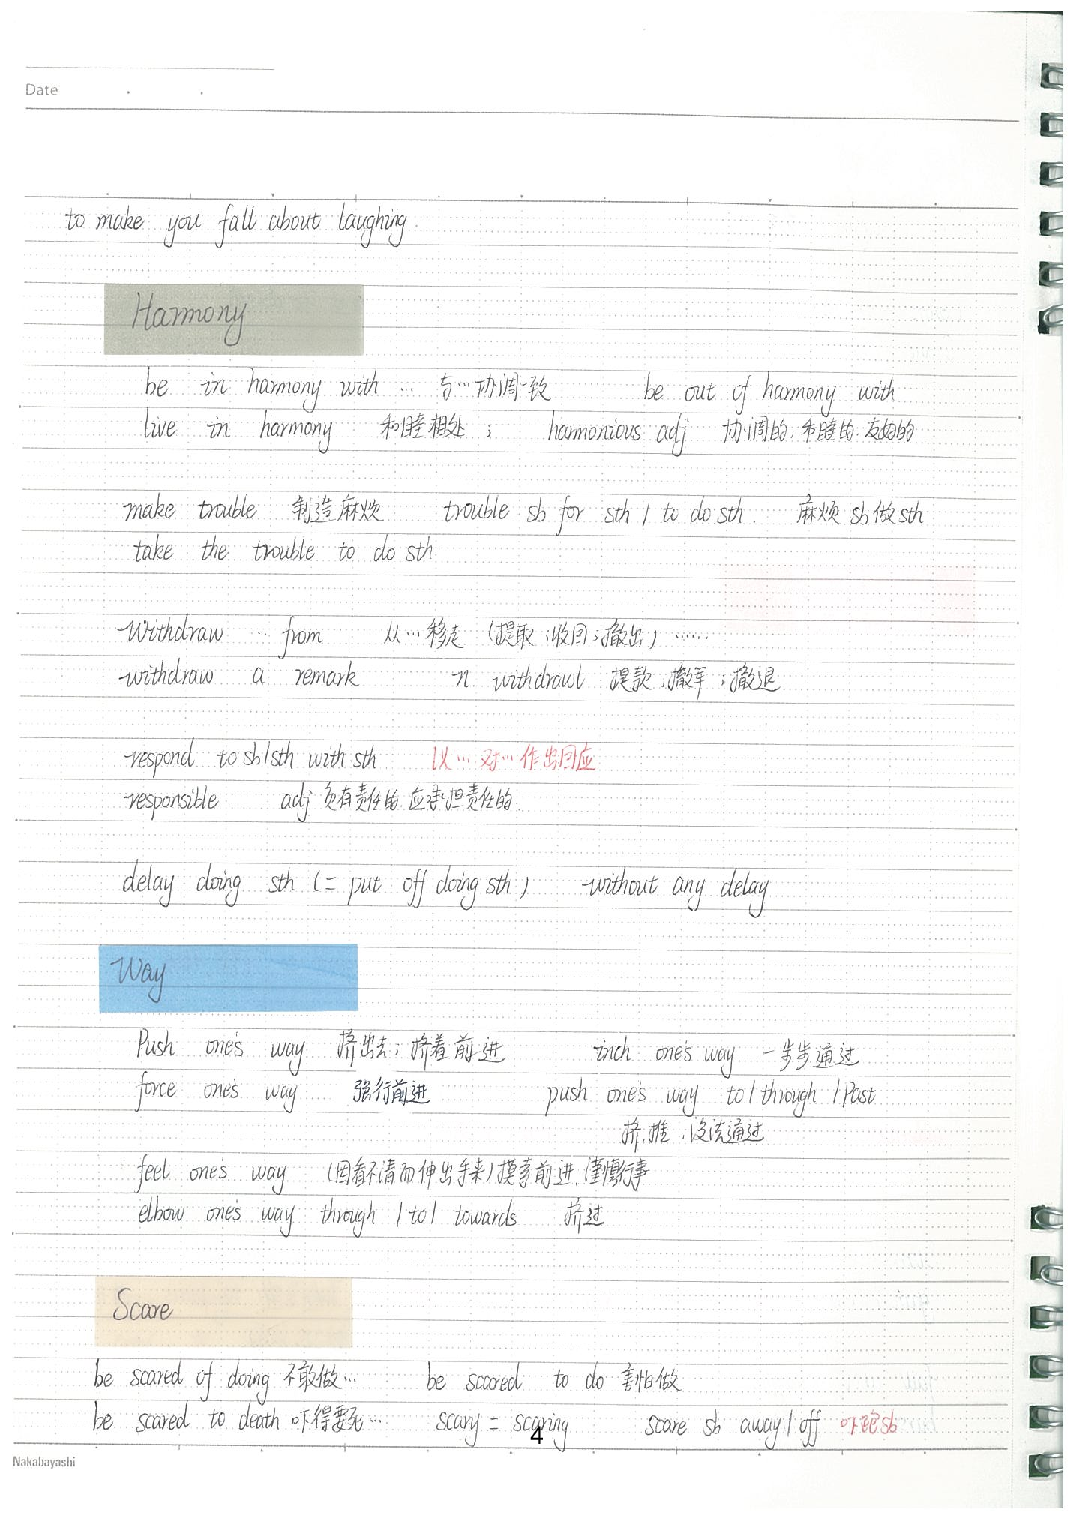 Date
to make you fall about laughing.
Harmony
be in harmony with … 与…协调一致 be out of harmony with
live in harmony 和睦相处； harmonious adj 协调的.和睦的.友好的
make trouble 制造麻烦 trouble sb for sth / to do sth 麻烦 sb 做 sth
take the trouble to do sth
Withdraw … from 从…移走 (提取；收回；撤出) ……
withdraw a remark n withdrawl 提款；撤军；撤退
respond to sb/sth with sth 以…对…作出回应
responsible adj 负有责任的.应承担责任的
delay doing sth (= put off doing sth) without any delay
Way
Push one's way 挤出去；挤着前进 inch one's way 一步步通过
force one's way 强行前进 push one's way to / through / Past
挤.推.设法通过
feel one's way (因看不清而伸出手来)摸索前进.谨慎行事
elbow one's way through / to / towards 挤过
Scare
be scared of doing 不敢做… be scared to do 害怕做
be scared to death 吓得要死… scary = scaring scare sb away / off 吓跑sb
4
Nakabayashi